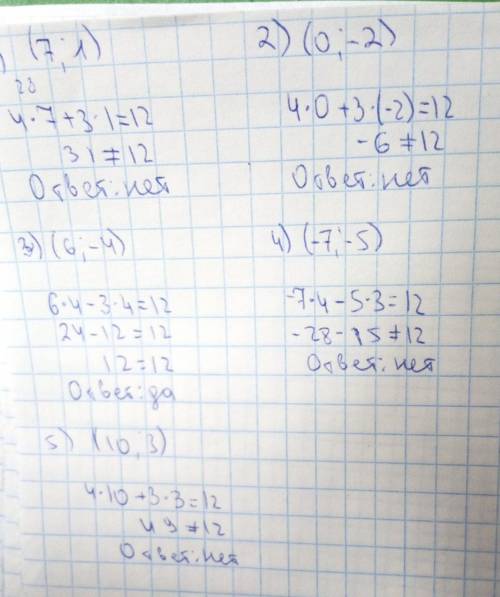 ) (7; 1)
28
4·7+3·1=12
31≠12
Ответ: нет
2) (0; -2)
4·0+3·(-2)=12
-6≠12
Ответ: нет
3) (6; -4)
6·4-3·4=12
24-12=12
12=12
Ответ: да
4) (-7; -5)
-7·4-5·3=12
-28-15≠12
Ответ: нет
5) (10; 3)
4·10+3·3=12
49≠12
Ответ: нет